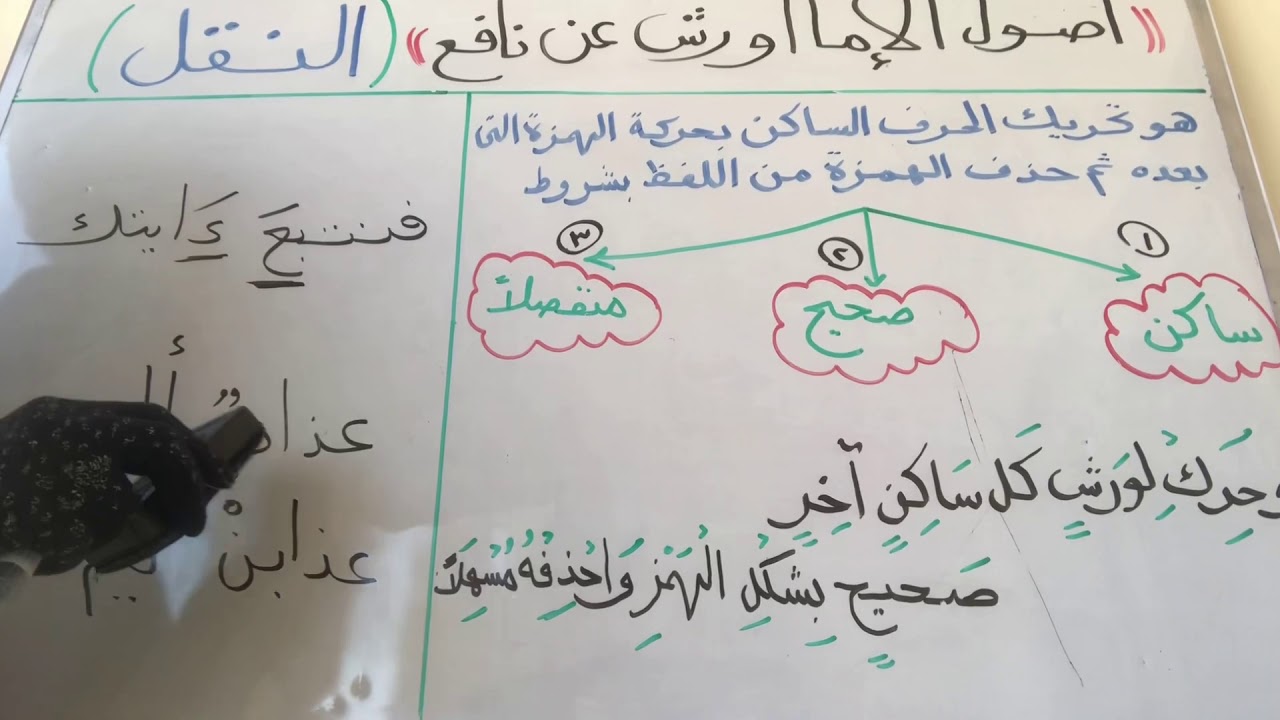 «اصول الإمام ورش عن نافع» (النقل)
هو تحريك الحرف الساكن بحركة الهمزة التى
بعده ثم حذف الهمزة من اللفظ بشروط
١ ٢ ٣
ساكن صحيح منفصلاً
وحَرِّكْ لِوَرْشٍ كُلَّ سَاكِنِ آخِرٍ
صَحيحٍ بِشَكْلِ الْهَمْزِ وَاحْذِفْهُ مُسْهِلَاً
فنتبعَ ءَايتك
عذابٌ
عذابنْ